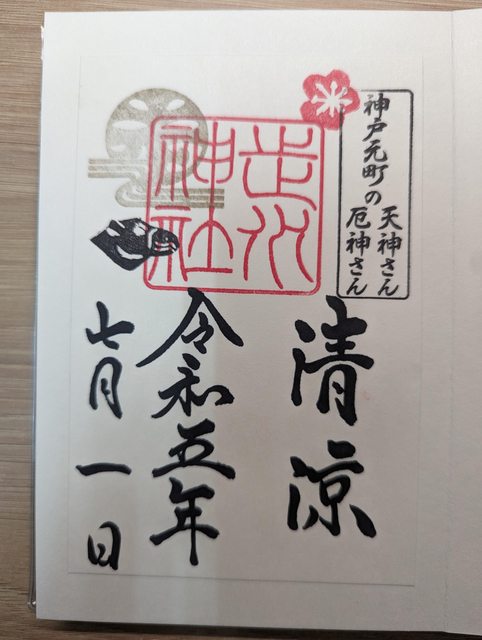 神戸元町の
天神さん
厄神さん
走水
神社
清涼
令和五年
七月一日